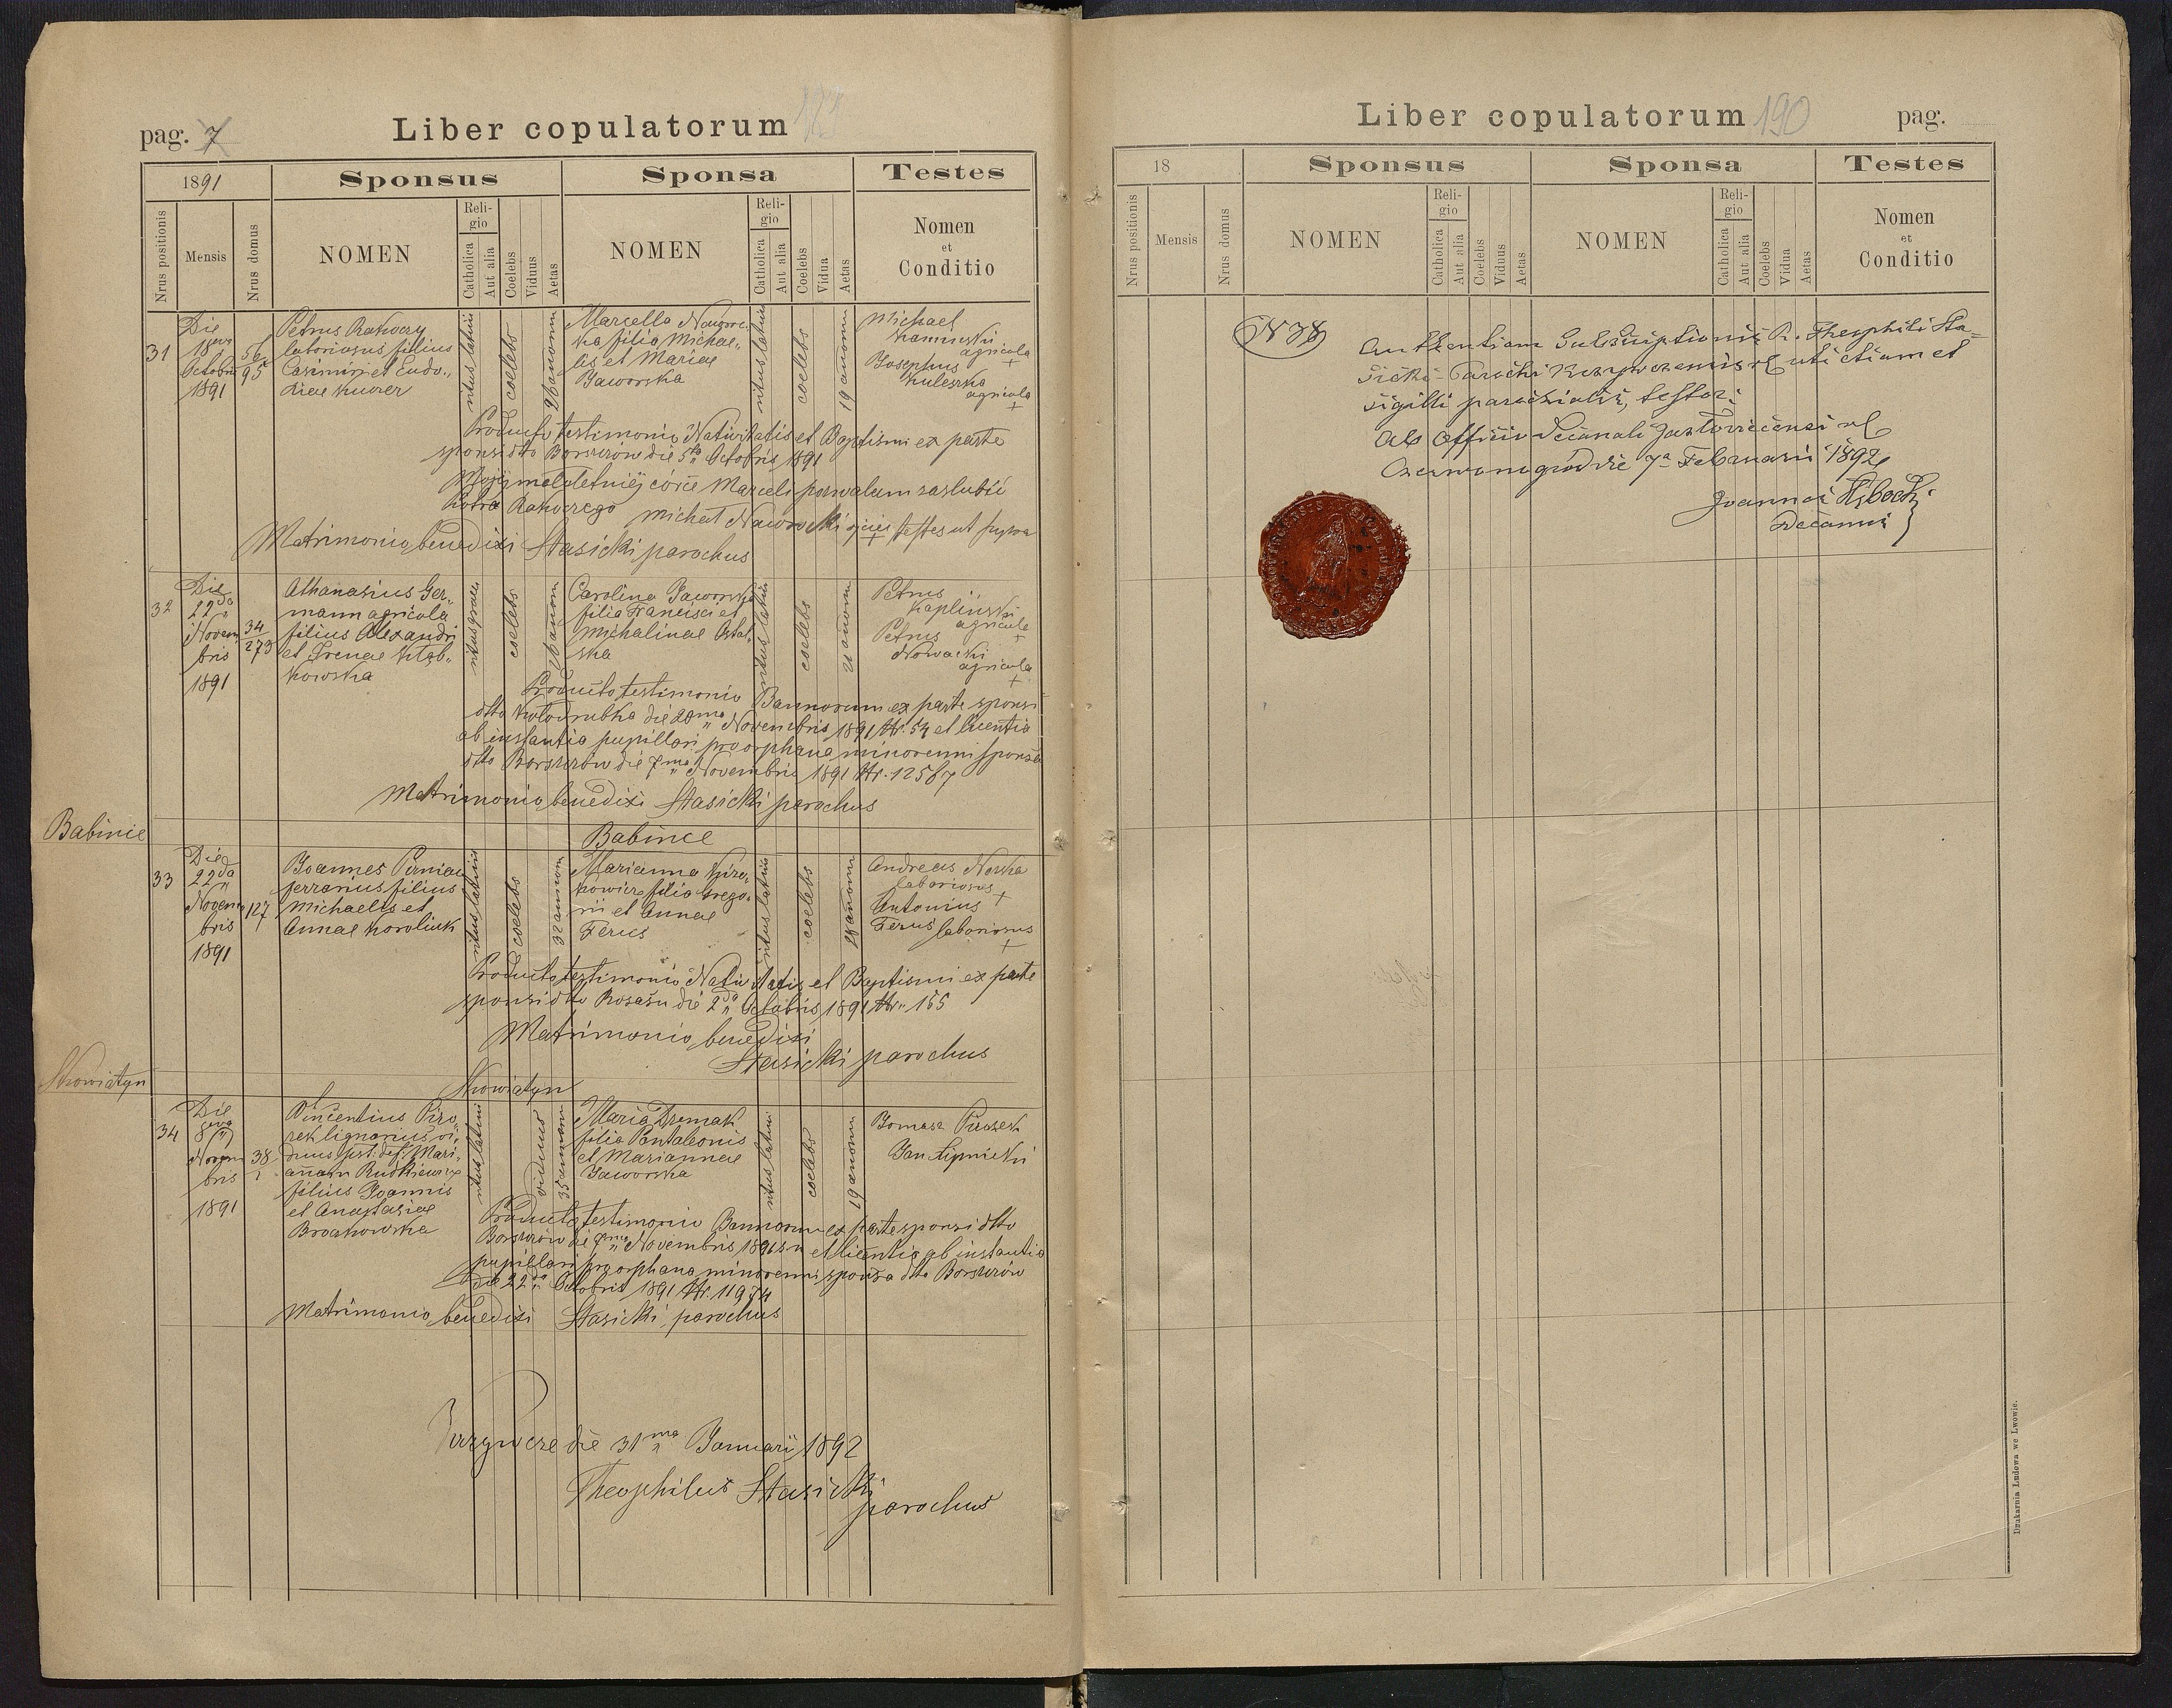 pag. 7
Liber copulatorum
1891
Sponsus
Sponsa
Testes
Nrus positionis
Mensis
Nrus domus
NOMEN
Religio
Catholica
Aut alia
Coelebs
Viduus
Aetas
NOMEN
Religio
Catholica
Aut alia
Coelebs
Vidua
Aetas
Nomen
et
Conditio
31
Die
Octobris
1891
56
95
Petrus Rakoczy
laboriosus filius
Casimiri et Eudo„
xiae
ritus latini
coelebs
26 annorum
Marcella Nawroc„
ka filia Michae„
lis et Mariae
Jaworska
ritus latini
coelebs
19 annorum
Michael
Kaminski
agricola
+
Josephus
Kuleszka
agricola
+
Producto testimonio Nativitatis et Baptismi ex parte
sponsi dtto Borszczów die 5ta Octobris 1891
Mojej małoletniej córce Marceli pozwalam zaślubić
Piotra Rakoczego Michał Nawrocki ojciec + testes ut supra
Matrimonio benedixi Stasicki parochus
32
Die
22da
Novem
bris
1891
34
273
Athanasius Ger„
mann agricola
filius Alexandri
et Irenae
kowska
ritus graeci
coelebs
26 annorum
Carolina Jaworska
filia Francisci et
Michalinae
ska
ritus latini
coelebs
21 annorum
Petrus
Kapliński
agricola
+
Petrus
Nowacki
agricola
+
Producto testimonio Bannorum ex parte sponsi
dtto Kołodrubka die Novembris 1891 Nr. 54 et licentia
ab instantia pupillari pro orphana minorenni sponsa
dtto Borszczów die 7ma Novembris 1891 Nr. 12567
Matrimonio benedixi Stasicki parochus
Babince
Babince
33
Die
22da
Novem
bris
1891
127
Joannes Pirniak
ferrarius filius
Michaelis et
Annae Koroliuk
ritus latini
coelebs
32 annorum
Marianna
kowicz filia Grego„
rii et Annae
Ferus
ritus latini
coelebs
annorum
Andreas Noska
laboriosus
+
Antonius
Ferus laboriosus
+
Producto testimonio Nativitatis et Baptismi ex parte
sponsi dtto die 2da Octobris 1891 Nr. 155
Matrimonio benedixi
Stasicki parochus
Skowiatyn
Skowiatyn
34
Die
8va
Novem
bris
1891
38
Vincentius Piro„
zek lignarius vi„
duus post def: Mari„
annam Rudkiewicz
filius Joannis
et Anastasiae
Broczkowska
ritus latini
viduus
35 annorum
Maria Dremak
filia Pantaleonis
et Mariannae
Jaworska
ritus latini
coelebs
19 annorum
Tomasz Pirozek
Jan Lipnicki
Producto testimonio Bannorum ex parte sponsi dtto
Borszczów die 7ma Novembris 1891 et licentia ab instantia
pupillari pro orphana minorenni sponsa dtto Borszczów
die 22da Octobris 1891 Nr. 11934
Matrimonio benedixi Stasicki parochus
Krzywcze die 31ma Januarii 1892
Theophilus Stasicki
parochus
Liber copulatorum 190
pag.
18
Sponsus
Sponsa
Testes
Nrus positionis
Mensis
Nrus domus
NOMEN
Religio
Catholica
Aut alia
Coelebs
Viduus
Aetas
NOMEN
Religio
Catholica
Aut alia
Coelebs
Vidua
Aetas
Nomen
et
Conditio
N 38
Authentiam Subscriptionis R. Theophili Sta-
sicki Parochi Krzywczensis r.l. uti etiam et
sigilli parochialis, testor:
Ab Officio Decanali Jazłoviecensi r.l.
Czerwonogród die 7a Februarii 1892
Joannes
Decanus
Drukarnia Ludowa we Lwowie.